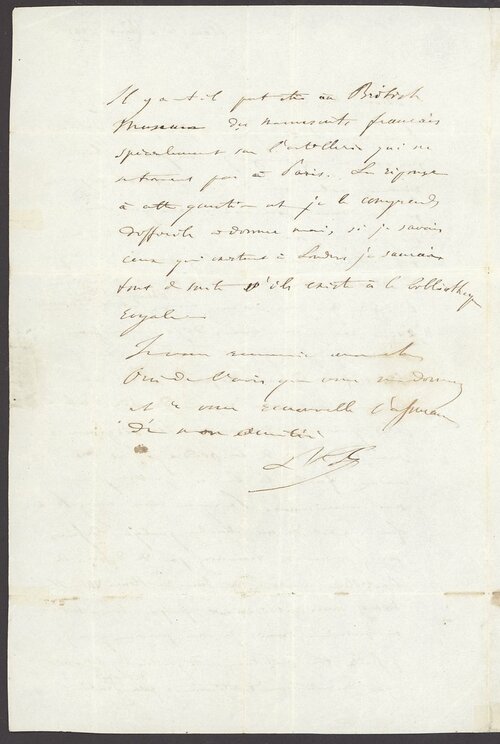 Il y a t il peut etre au British
Museum des manuscrits francais
specialement sur l'artillerie qui ne
se trouvent pas à Paris. La réponse
à cette question est je le comprends
difficile a donner mais, si je savais
ceux qui existent à Londres je saurais
tout de suite s'ils existe à la bibliothèque
royale
Je vous remercie
de l'avis que vous me donnez
et vous renouvelle l'assurance
de mon amitié